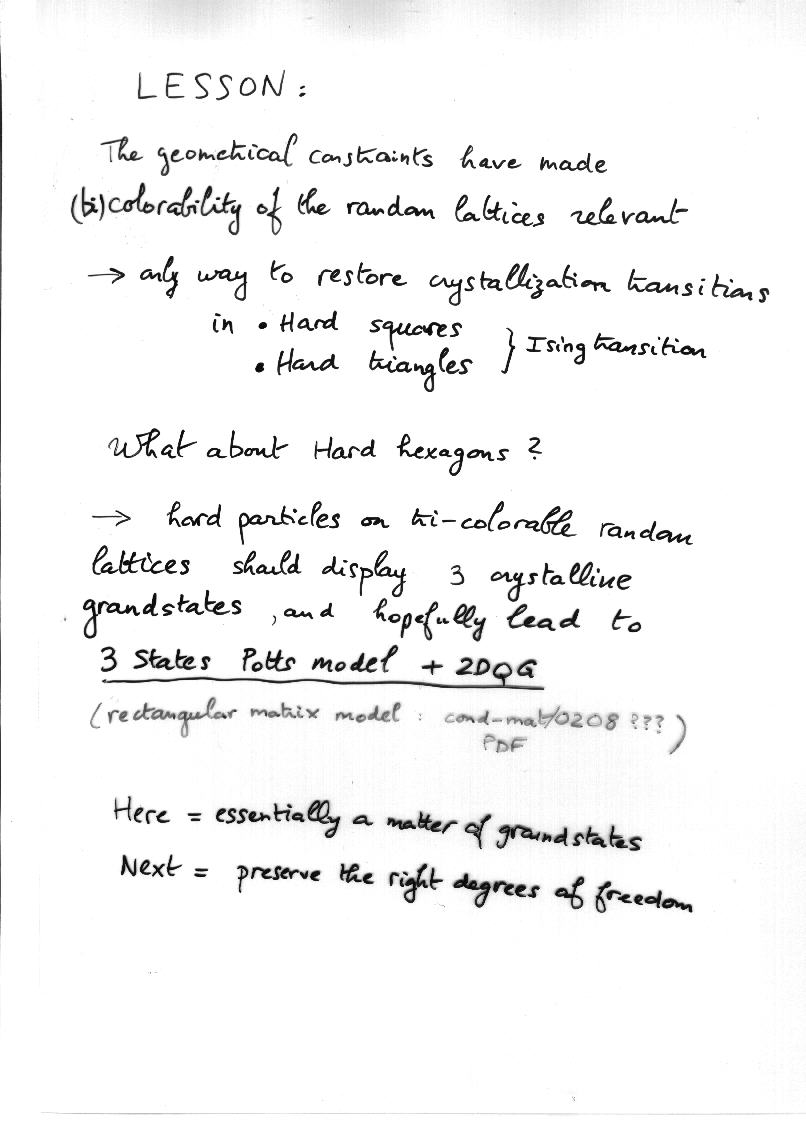 LESSON :
The geometrical constraints have made
(bi)colorability of the random lattices relevant
→ only way to restore crystallization transitions
in • Hard squares
• Hard triangles } Ising transition
What about Hard hexagons ?
→ hard particles on tri-colorable random
lattices should display 3 crystalline
groundstates , and hopefully lead to
3 States Potts model + 2DQG
(rectangular matrix model : cond-mat/0208 ???)
PDF
Here = essentially a matter of groundstates
Next = preserve the right degrees of freedom